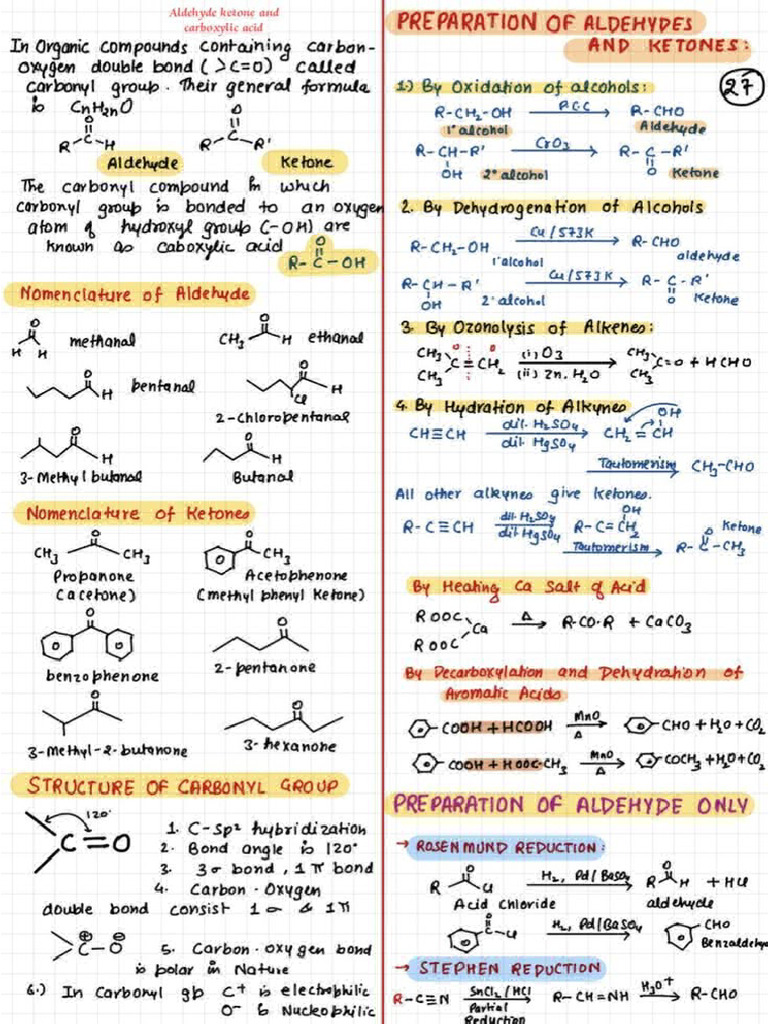 Aldehyde ketone and
carboxylic acid
In Organic compounds containing carbon-
oxygen double bond ( >C=O) called
carbonyl group. Their general formula
is CnH2nO
O
R C H
Aldehyde
O
R C R'
Ketone
The carbonyl compound in which
carbonyl group is bonded to an oxygen
atom of hydroxyl group (-OH) are
known as caboxylic acid
O
R-C-OH
Nomenclature of Aldehyde
O
H H
methanal
O
CH3 H
ethanal
O
H
pentanal
O
H
Cl
2-chloropentanal
O
H
3-Methyl butanal
O
H
Butanal
Nomenclature of Ketones
O
CH3 CH3
Propanone
(acetone)
O
CH3
Acetophenone
(methyl phenyl Ketone)
O
benzophenone
O
2-pentanone
O
3-Methyl-2-butanone
O
3-hexanone
STRUCTURE OF CARBONYL GROUP
120°
C=O
1. C-sp² hybridization
2. Bond angle is 120°
3. 3σ bond, 1π bond
4. Carbon-Oxygen
double bond consist 1σ & 1π
⊕ ⊖
C-O
5. Carbon-oxygen bond
is polar in Nature
6.) In Carbonyl gp C+ is electrophilic
O- is Nucleophilic
PREPARATION OF ALDEHYDES
AND KETONES:
27
1.) By Oxidation of alcohols:
R-CH2-OH P.C.C R-CHO
1° alcohol Aldehyde
R-CH-R' CrO3 R-C-R'
OH 2° alcohol O Ketone
2. By Dehydrogenation of Alcohols
R-CH2-OH Cu/573K R-CHO
1°alcohol aldehyde
R-CH-R' Cu/573K R-C-R'
OH 2°alcohol O Ketone
3. By Ozonolysis of Alkenes:
O O
CH3 C=CH2 (i)O3 CH3 C=O + HCHO
CH3 (ii) Zn. H2O CH3
4. By Hydration of Alkynes
OH
CH≡CH dil. H2SO4 CH2=CH
dil. HgSO4
Tautomerism CH3-CHO
All other alkynes give ketones.
OH
R-C≡CH dil. H2SO4 R-C=CH2
dil. HgSO4
O Ketone
Tautomerism R-C-CH3
By Heating Ca Salt of Acid
ROOC
Ca Δ R-CO-R + CaCO3
ROOC
By Decarboxylation and Dehydration of
Aromatic Acids
COOH + HCOOH MnO CHO+H2O+CO2
Δ
COOH + HOOC-CH3 MnO COCH3+H2O+CO2
Δ
PREPARATION OF ALDEHYDE ONLY
→ ROSENMUND REDUCTION:
O O
R Cl H2, Pd/BaSO4 R H + HCl
Acid Chloride aldehyde
O
C-Cl H2, Pd/BaSO4 CHO
Benzaldehy
→ STEPHEN REDUCTION
R-C≡N SnCl2/HCl R-CH=NH H3O+ R-CHO
Partial
Reduction